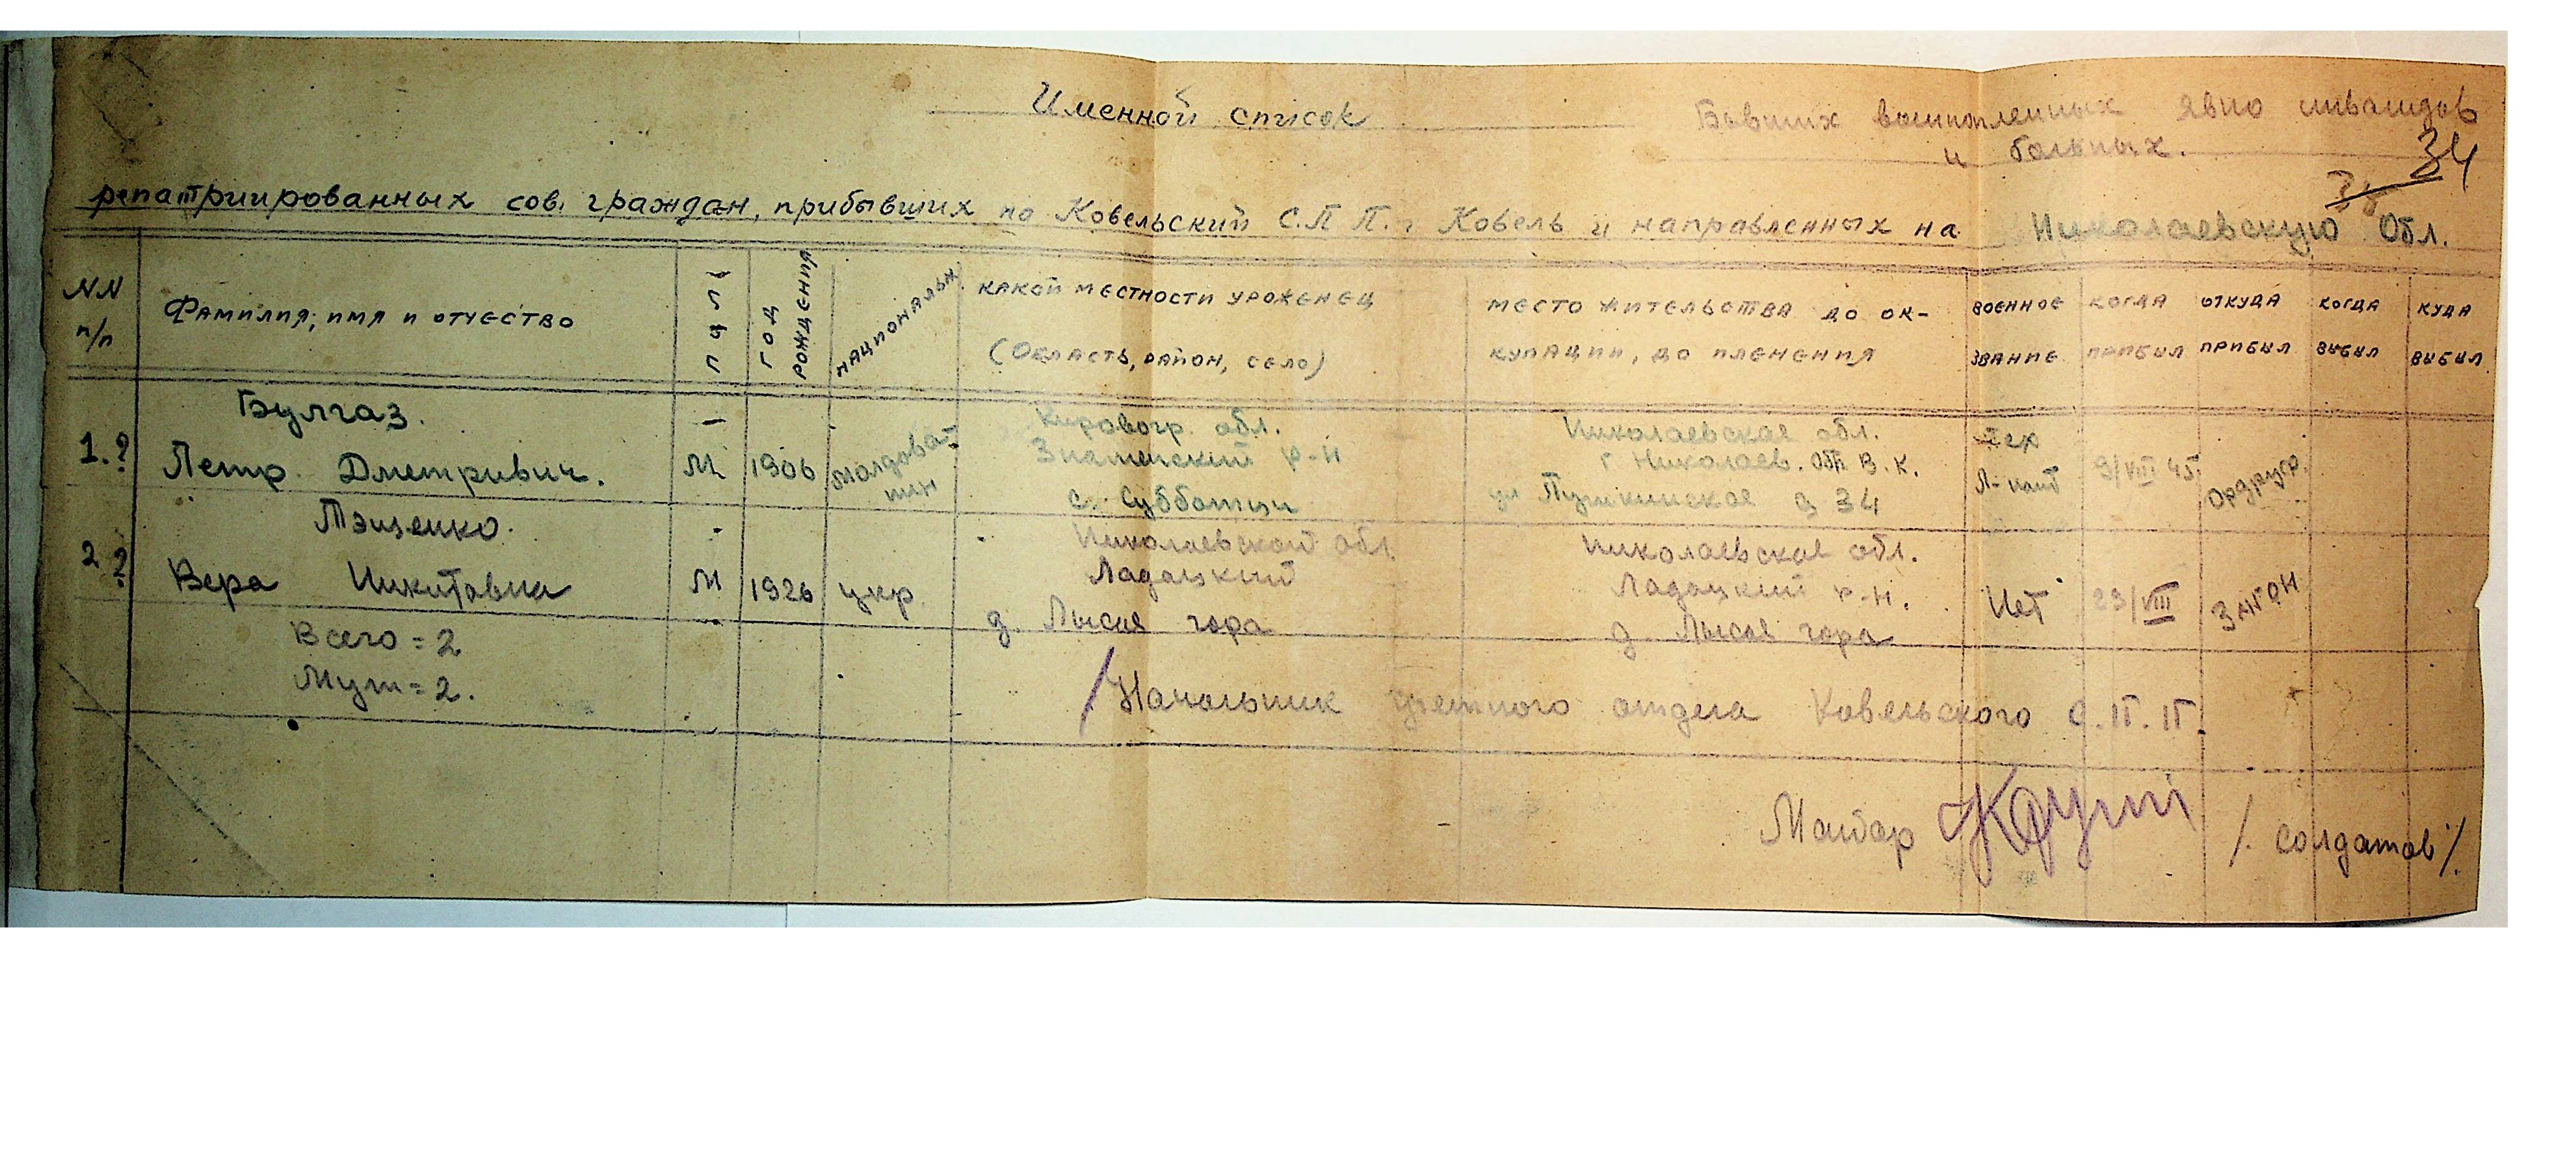 Именной список
Бывших военнопленных явно инвалидов
и больных.
34
репатриированных сов. граждан, прибывших на Ковельский С.П П. г Ковель и направленных на Николаевскую Обл.
NN п/п
Фамилия, имя и отчество
пол
год рождения
национальн.
какой местности уроженец
(область, район, село)
место жительства до ок-
купации, до пленения
военное звание
когда прибыл
откуда прибыл
когда выбыл
куда выбыл
1.?
Булгаз.
Петр Дметривич.
М
1906
молдован
Кировогр. обл.
Знаменский р-н
с. Субботцы
Николаевская обл.
г Николаев. Обл. В. К.
ул Пушкинская д 34
Тех
Л-нант
9/VIII 45
Ордруф.
2 ?
Вера Никитовна
М
1926
укр
Николаевской обл.
д. Лысая гора
Николаевская обл.
р-н.
д. Лысая гора
Нет
23/VIII
Заган
Всего = 2
Муж = 2.
/Начальник учетного отдела Ковельского С.П.П.
Майор
/. Солдатов /.